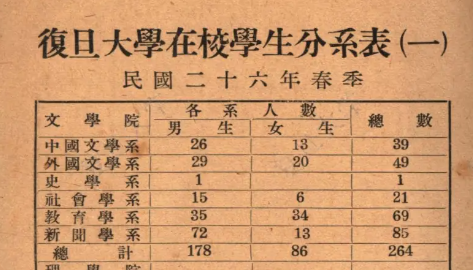 復旦大學在校學生分系表(一)
民國二十六年春季
文學院 各系人數 總數
男生 女生
中國文學系 26 13 39
外國文學系 29 20 49
史學系 1 1
社會學系 15 6 21
教育學系 35 34 69
新聞學系 72 13 85
總計 178 86 264